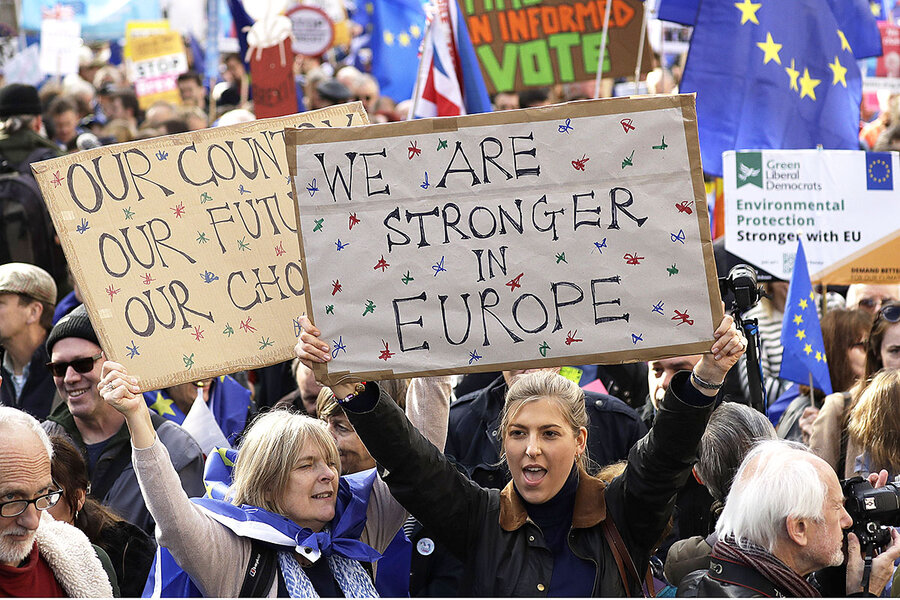 AN INFORMED
VOTE
STOP
OUR COUNTRY
OUR FUTURE
OUR CHO
WE ARE
STRONGER
IN
EUROPE
Green Liberal
Democrats
Environmental
Protection
Stronger with EU
DEMAND BETTER